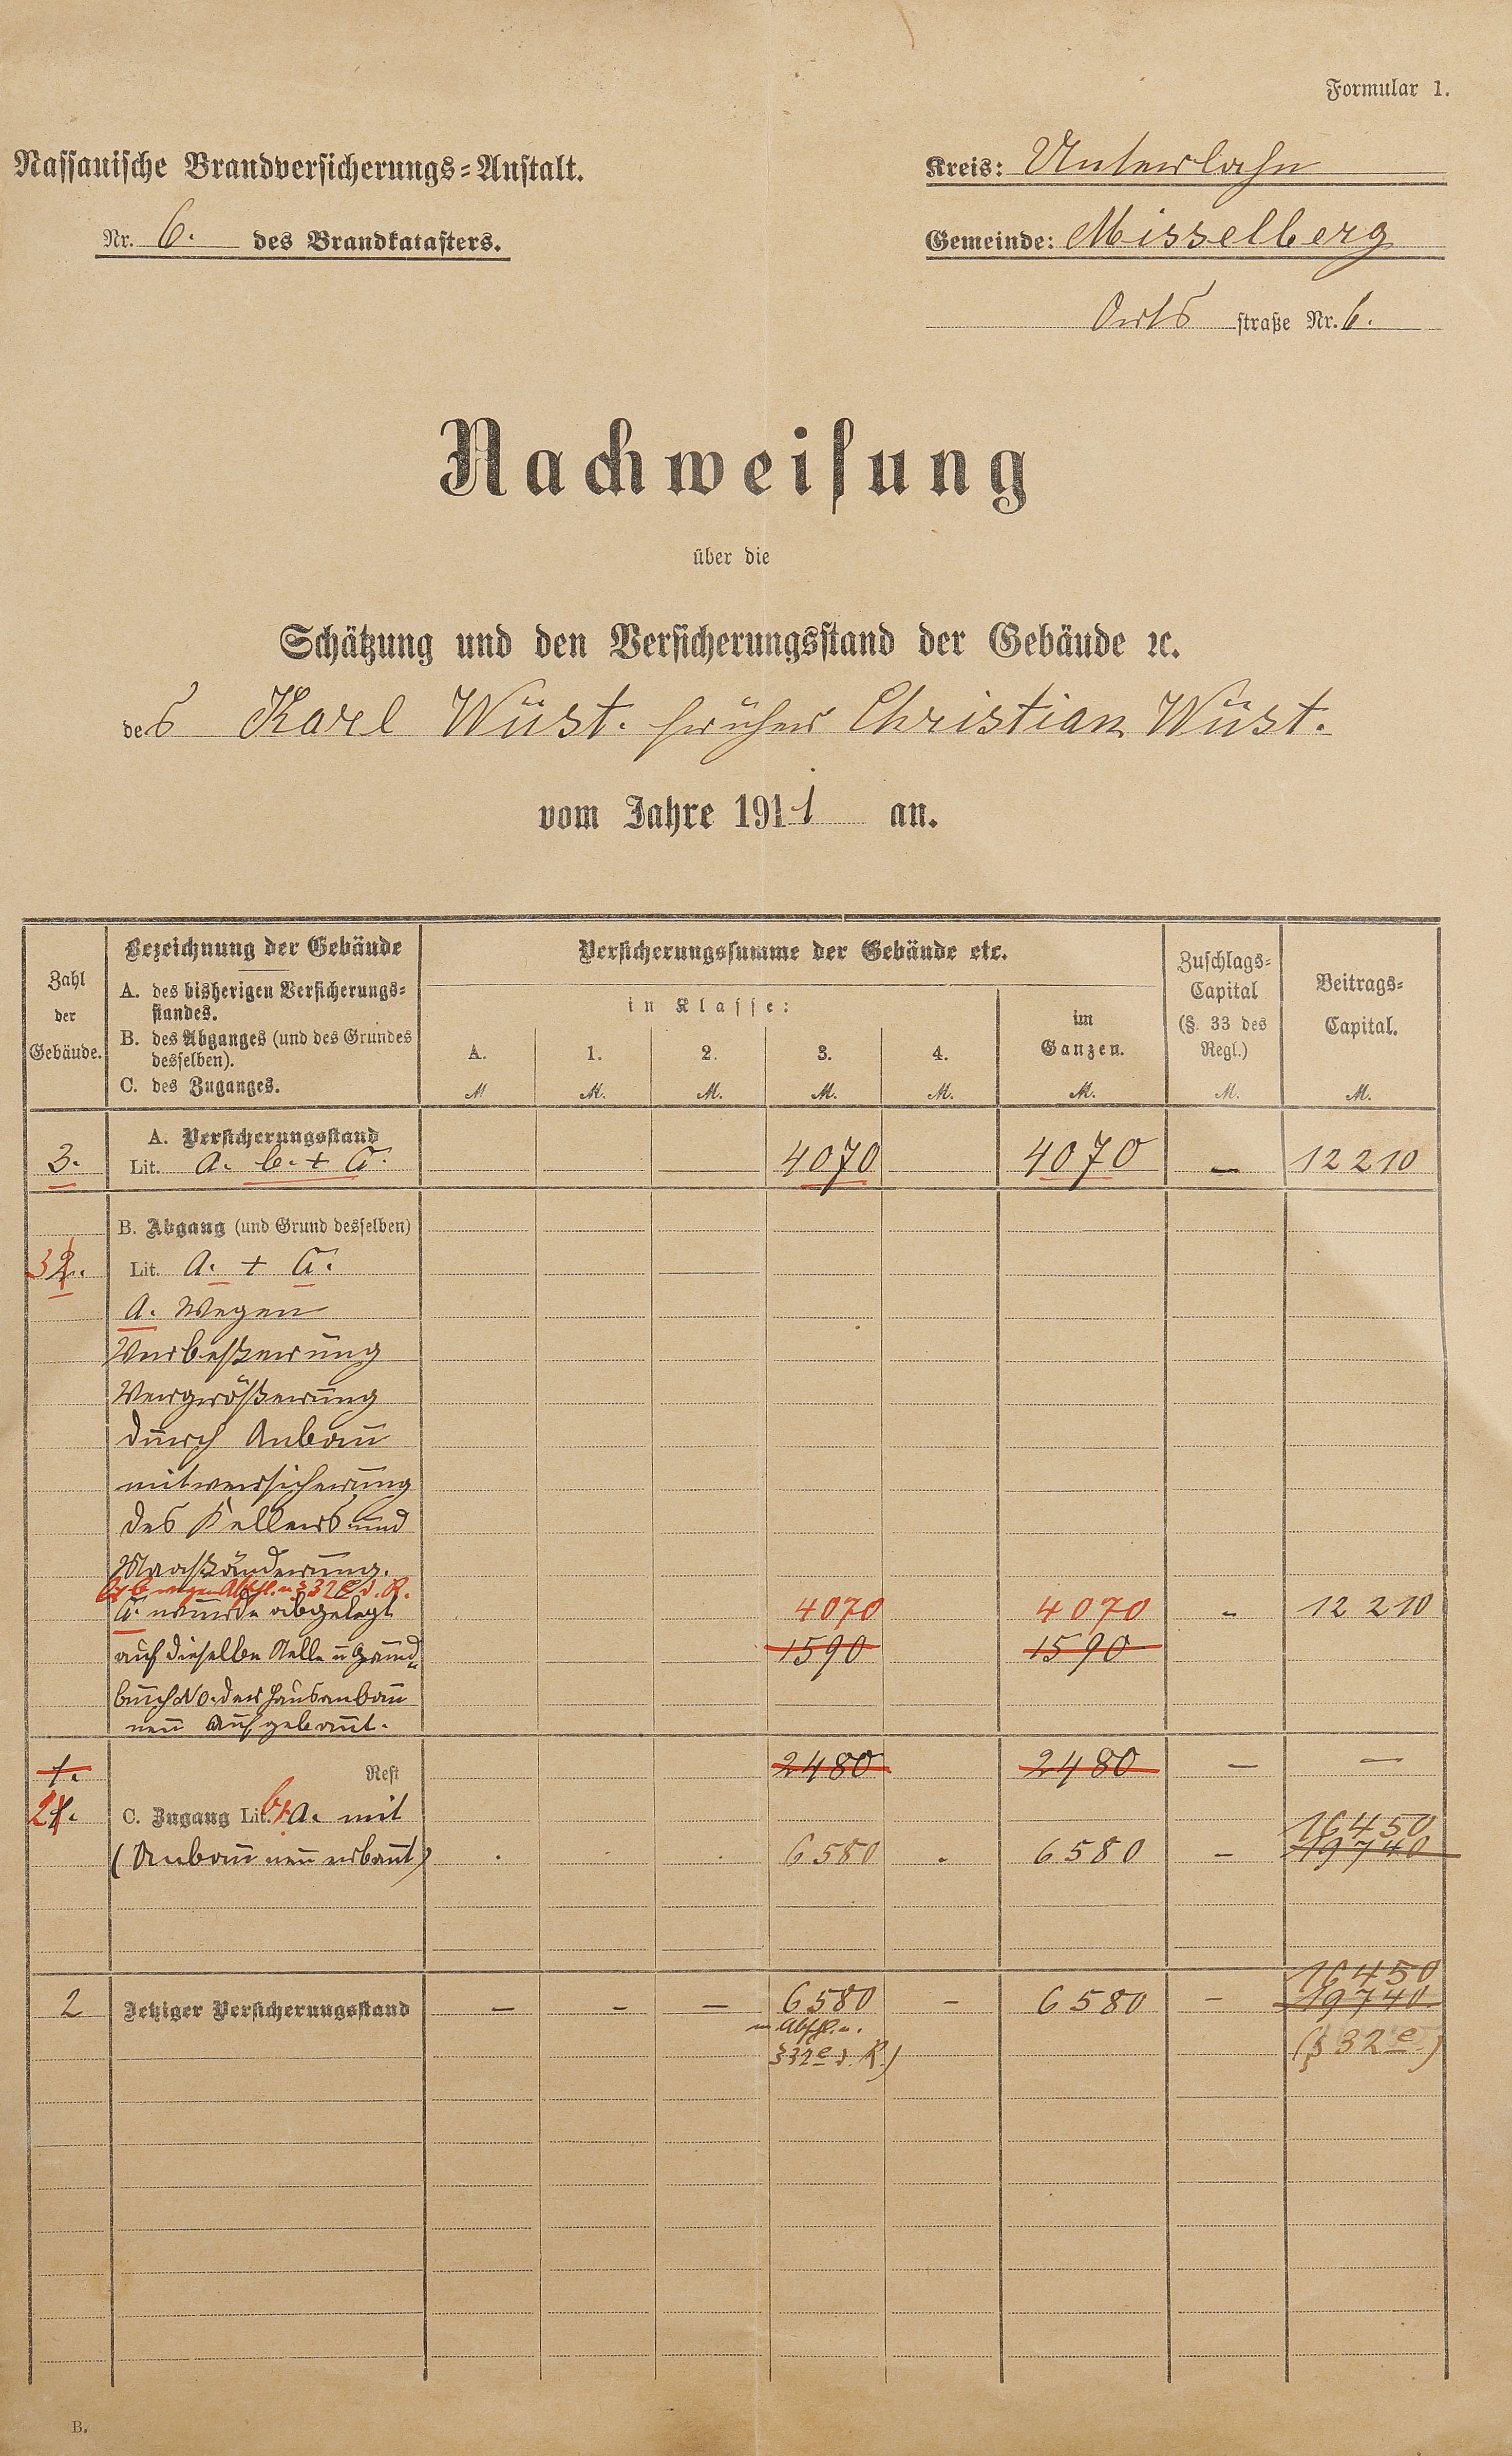 Formular 1.
Nassauische Brandversicherungs=Anstalt.
Kreis: Unterlahn
Nr. 6. des Brandkatasters.
Gemeinde: Misselberg
Orts straße Nr. 6.
Nachweisung
über die
Schätzung und den Versicherungsstand der Gebäude ꝛc.
des Karl Wüst. früher Christian Wüst.
vom Jahre 1911 an.
Zahl der Gebäude.
Bezeichnung der Gebäude
A. des bisherigen Versicherungs=
standes.
B. des Abganges (und des Grundes
desselben).
C. des Zuganges.
Versicherungssumme der Gebäude etc.
in Klasse:
A. 1. 2. 3. 4.
im
Ganzen.
Zuschlags=
Capital
(§. 33 des
Regl.)
Beitrags=
Capital.
M M. M. M. M. M. M. M.
A. Versicherungsstand
3. Lit. a. b. + c. 4070 4070 – 12210
B. Abgang (und Grund desselben)
3 2. Lit. a. + c.
a. Wegen
Verbeßerung
Vergrößerung
durch Anbau
mitversicherung
des Kellers und
Maaßänderung.
b wegen Abschl. n. § 32 e d. R.
c. wurde abgelegt 4070 4070 - 12210
auf dieselbe Stelle u Grund= 1590 1590
buch No. der Hausanbau
neu aufgebaut.
1. Rest 2480 2480 — —
2 1. C. Zugang Lit. b + a. mit
16450
(Anbau neu erbaut) 6580 6580 – 19740
16450
2 Jetziger Versicherungsstand – – – 6580 – 6580 – 19740
n. Abschl. n.
§ 32 e d. R.) (§ 32 e.)
B.